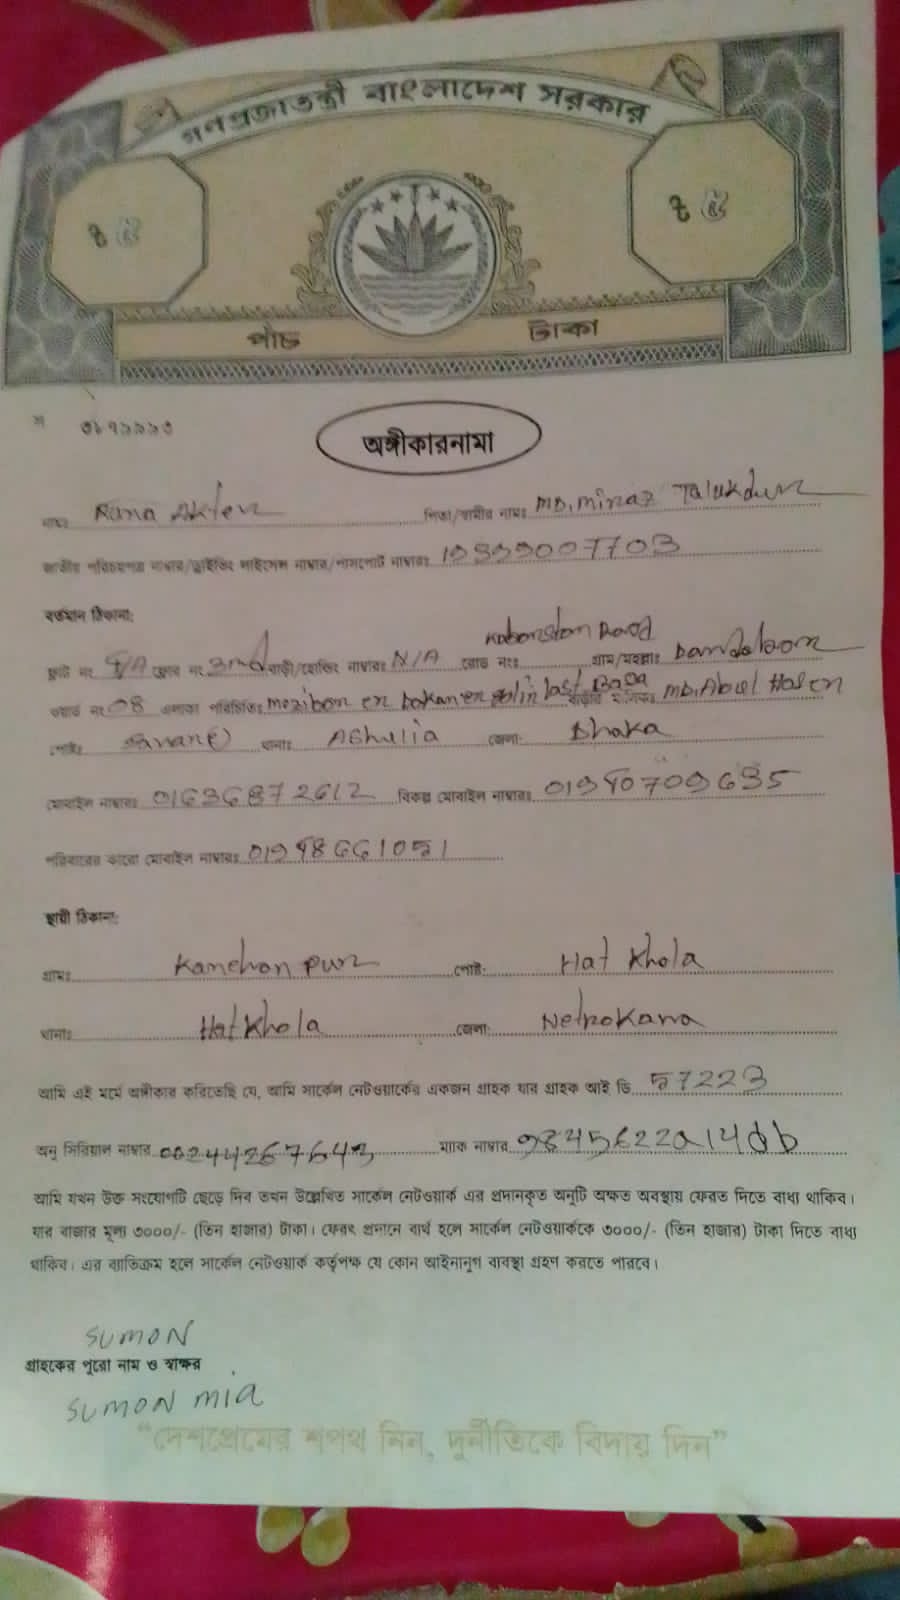 গণপ্রজাতন্ত্রী বাংলাদেশ সরকার
৳ ৫ ৳ ৫
পাঁচ টাকা
অঙ্গীকারনামা
নামঃ Runa Akter পিতা/স্বামীর নামঃ MD. Minaz Talukdur
জাতীয় পরিচয়পত্র নাম্বার/ড্রাইভিং লাইসেন্স নাম্বার/পাসপোর্ট নাম্বারঃ
বর্তমান ঠিকানা:
ফ্লাট নং ফ্লোর নং 3rd বাড়ী/হোল্ডিং নাম্বারঃ N/A রোড নংঃ Road গ্রাম/মহল্লাঃ
ওয়ার্ড নং 08 এলাকা পরিচিতিঃ last MD. Abul Hasen
পোষ্টঃ থানাঃ Ashulia জেলা: Dhaka
মোবাইল নাম্বারঃ 01636872612 বিকল্প মোবাইল নাম্বারঃ
পরিবারের কারো মোবাইল নাম্বারঃ
স্থায়ী ঠিকানা:
গ্রামঃ Kanchon pur পোষ্ট: Hat Khola
থানাঃ Hat Khola জেলা: Netrokana
আমি এই মর্মে অঙ্গীকার করিতেছি যে, আমি সার্কেল নেটওয়ার্কের একজন গ্রাহক যার গ্রাহক আই ডি 57223
অনু সিরিয়াল নাম্বার ম্যাক নাম্বার
আমি যখন উক্ত সংযোগটি ছেড়ে দিব তখন উল্লেখিত সার্কেল নেটওয়ার্ক এর প্রদানকৃত অনুটি অক্ষত অবস্থায় ফেরত দিতে বাধ্য থাকিব।
যার বাজার মূল্য ৩০০০/- (তিন হাজার) টাকা। ফেরৎ প্রদানে ব্যর্থ হলে সার্কেল নেটওয়ার্ককে ৩০০০/- (তিন হাজার) টাকা দিতে বাধ্য
থাকিব। এর ব্যতিক্রম হলে সার্কেল নেটওয়ার্ক কর্তৃপক্ষ যে কোন আইনানুগ ব্যবস্থা গ্রহণ করতে পারবে।
SUMON
গ্রাহকের পুরো নাম ও স্বাক্ষর
SUMON MIA
“দেশপ্রেমের শপথ নিন, দুর্নীতিকে বিদায় দিন”